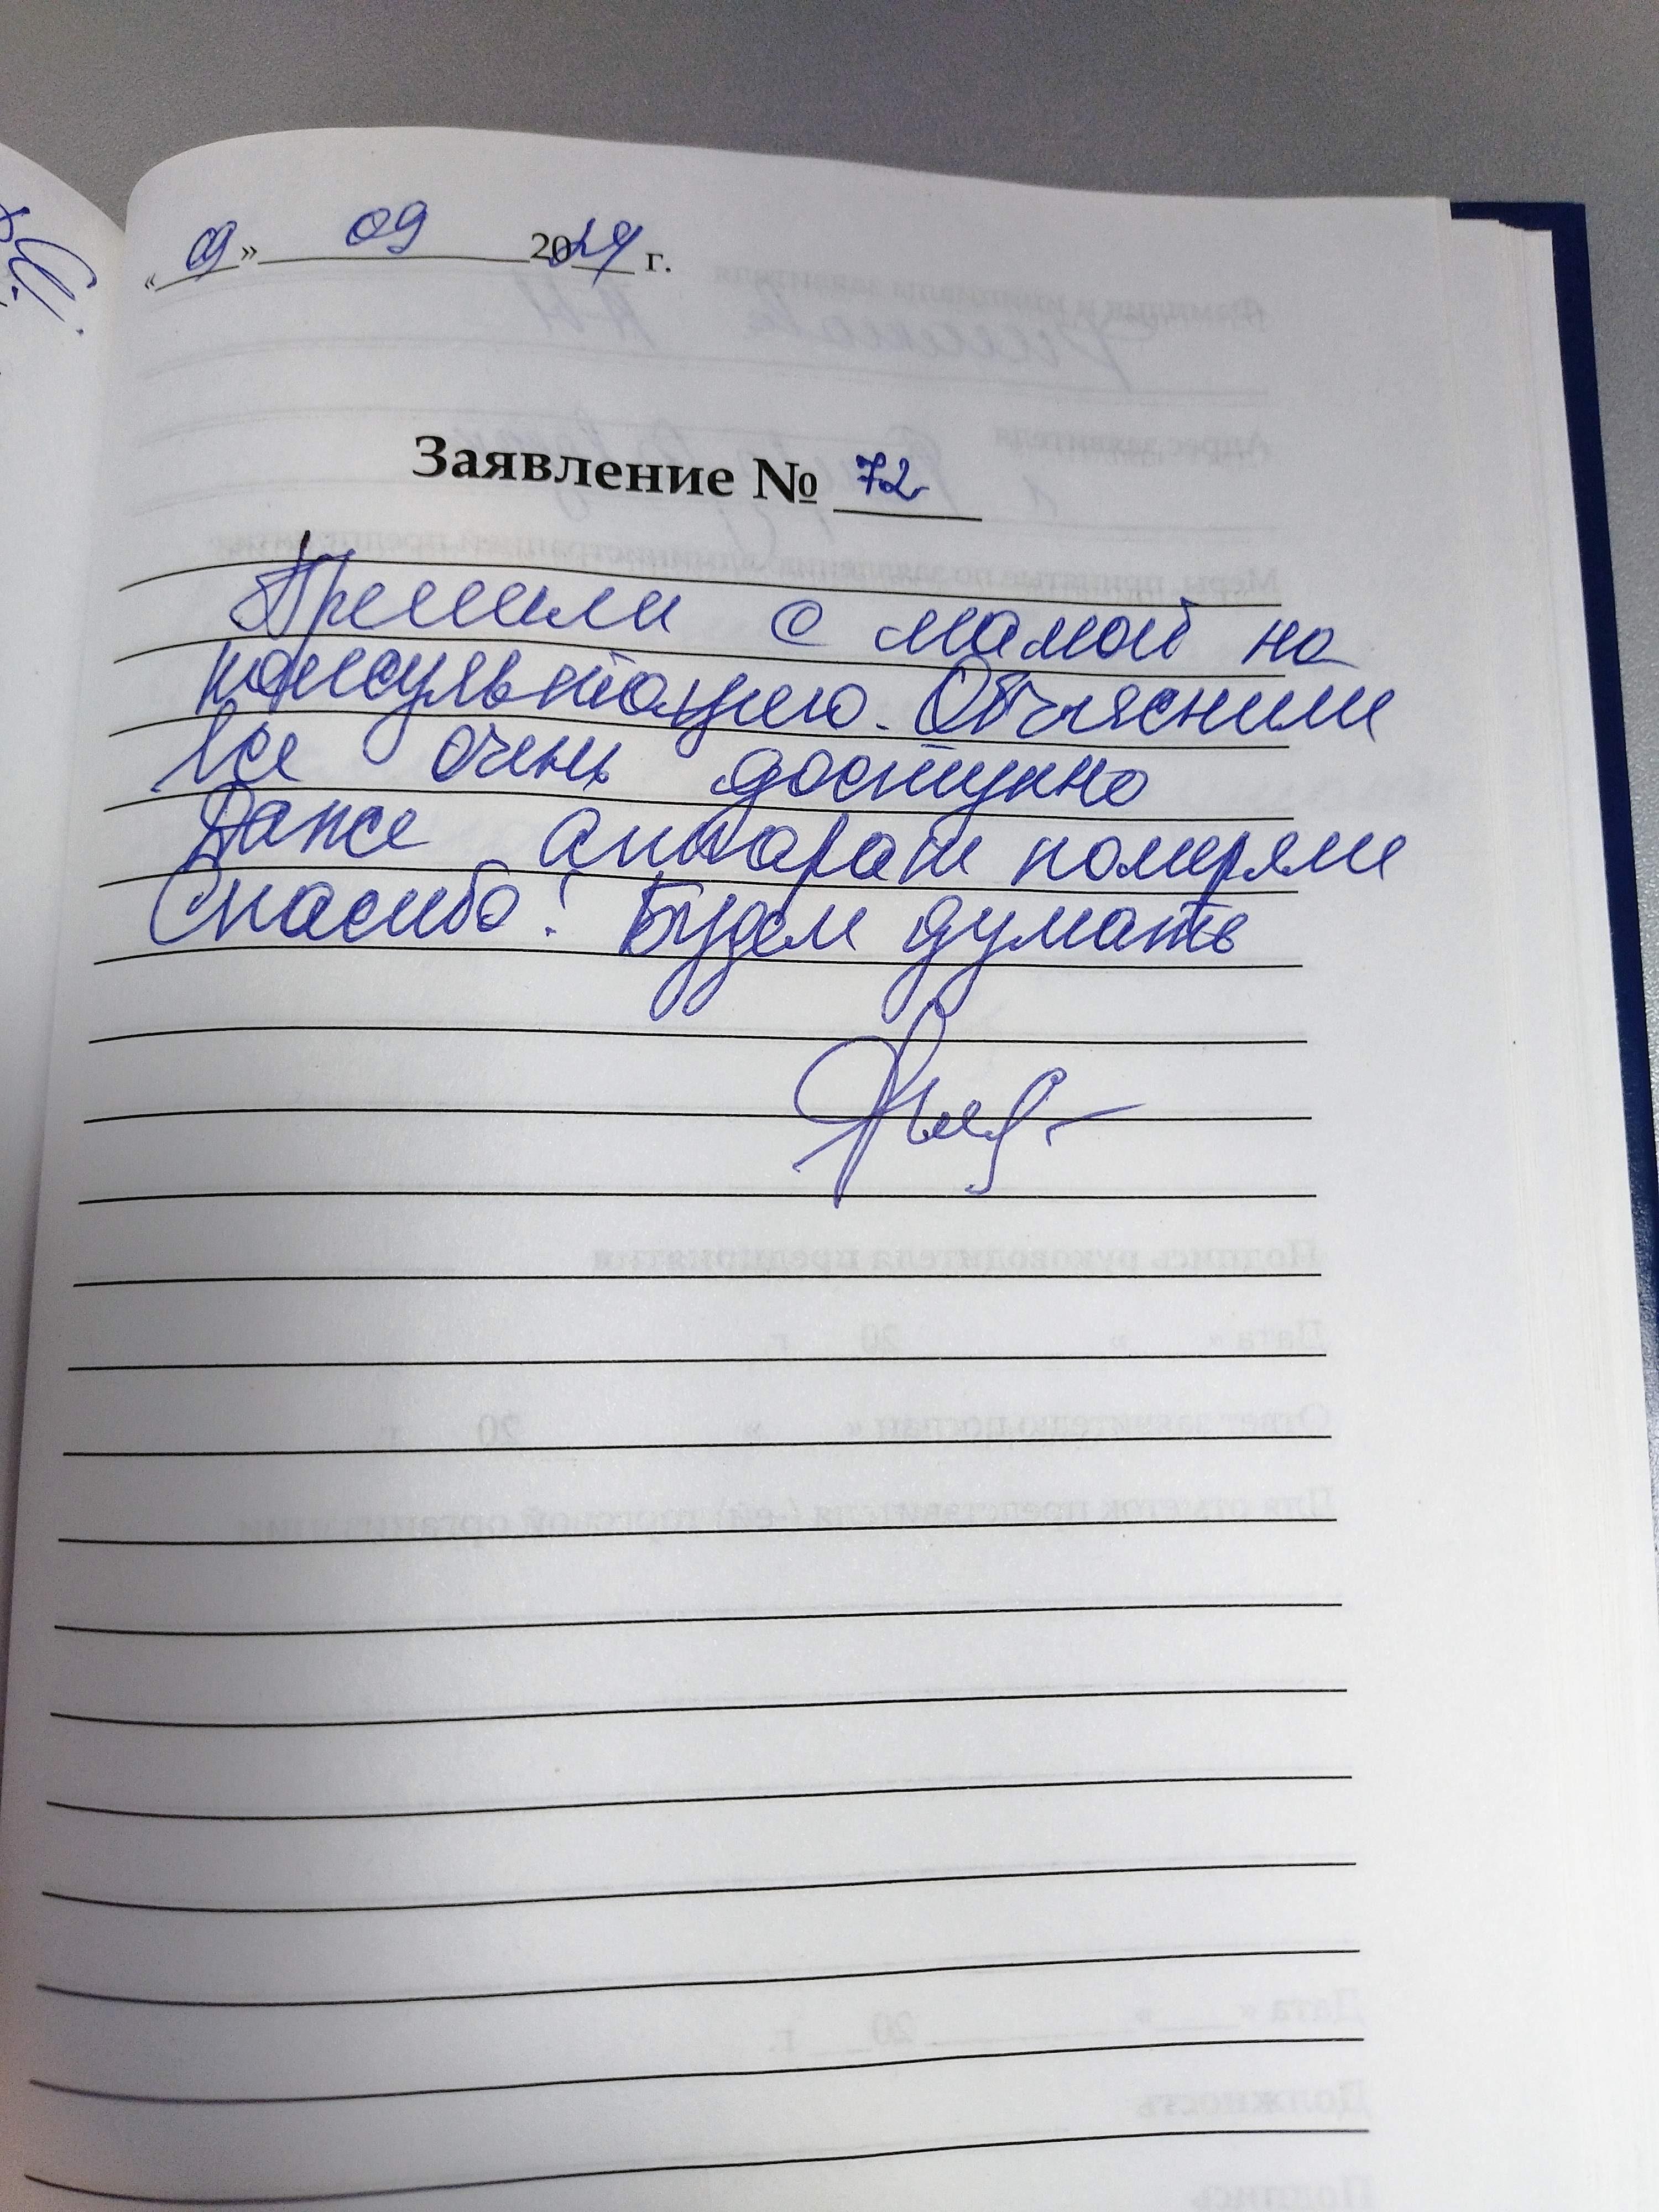 « 09 » 09 2024 г.
Заявление № 72
Пришли с мамой на
консультацию. Объяснили
все очень доступно
Даже аппарат померяли
Спасибо! Будем думать